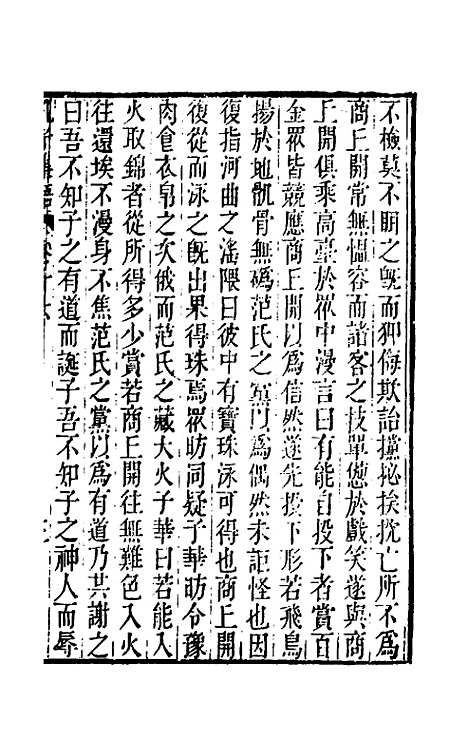 不檢莫不眲之既而狎侮欺詒攩㧙挨抌亡所不為
商丘開常無慍容而諸客之技單憊於戲笑遂與商
丘開俱乘高臺於眾中漫言曰有能自投下者賞百
金眾皆競應商丘開以為信然遂先投下形若飛鳥
揚於地骪骨無䃣范氏之黨以為偶然未詎怪也因
復指河曲之滛隈曰彼中有寶珠泳可得也商丘開
復從而泳之既出果得珠焉眾昉同疑子華昉令豫
肉食衣帛之次俄而范氏之藏大火子華曰若能入
火取錦者從所得多少賞若商丘開往無難色入火
往還埃不漫身不焦范氏之黨以為有道乃共謝之
曰吾不知子之有道而誕子吾不知子之神人而辱